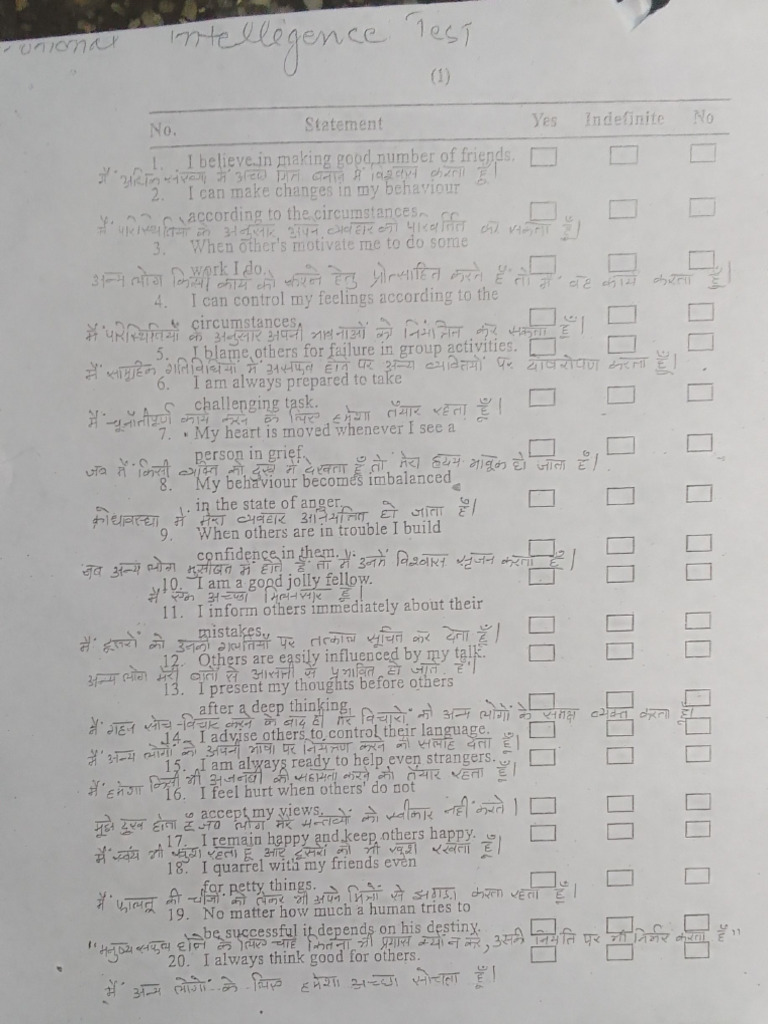 Intelligence Test
(1)
No. Statement Yes Indefinite No
1. I believe in making good number of friends.
मैं अधिक संख्या में अच्छे मित्र बनाने में विश्वास करता हूँ।
2. I can make changes in my behaviour
according to the circumstances.
मैं परिस्थितियों के अनुसार अपने व्यवहार को परिवर्तित कर सकता हूँ।
3. When other's motivate me to do some
work I do.
अन्य लोग किसी कार्य को करने हेतु प्रोत्साहित करते हैं तो मैं वह कार्य करता हूँ।
4. I can control my feelings according to the
circumstances.
मैं परिस्थितियों के अनुसार अपनी भावनाओं को नियंत्रित कर सकता हूँ।
5. I blame others for failure in group activities.
मैं सामूहिक गतिविधियों में असफल होने पर अन्य व्यक्तियों पर दोषारोपण करता हूँ।
6. I am always prepared to take
challenging task.
मैं चूनौतीपूर्ण कार्य करने के लिए हमेशा तैयार रहता हूँ।
7. My heart is moved whenever I see a
person in grief.
जब मैं किसी व्यक्ति को दुख में देखता हूँ तो मेरा हृदय भावूक हो जाता है।
8. My behaviour becomes imbalanced
in the state of anger.
क्रोधावस्था में मेरा व्यवहार अनियंत्रित हो जाता है।
9. When others are in trouble I build
confidence in them.
जब अन्य लोग मुसीबत में होते हैं तो मैं उनमें विश्वास सृजन करता हूँ।
10. I am a good jolly fellow.
मैं एक अच्छा मिलनसार हूँ।
11. I inform others immediately about their
mistakes.
मैं दूसरों को उनकी गलतियों पर तत्काल सूचित कर देता हूँ।
12. Others are easily influenced by my talk.
अन्य लोग मेरी बातों से आसानी से प्रभावित हो जाते हैं।
13. I present my thoughts before others
after a deep thinking.
मैं गहन सोच-विचार करने के बाद ही मेरे विचारों को अन्य लोगों के समक्ष व्यक्त करता हूँ।
14. I advise others to control their language.
मैं अन्य लोगों को अपनी भाषा पर नियंत्रण करने की सलाह देता हूँ।
15. I am always ready to help even strangers.
मैं हमेशा किसी भी अजनबी की सहायता करने को तैयार रहता हूँ।
16. I feel hurt when others' do not
accept my views.
मुझे दुख होता है जब लोग मेरे मन्तव्यों को स्वीकार नहीं करते।
17. I remain happy and keep others happy.
मैं स्वयं भी खुश रहता हूँ और दूसरों को भी खुश रखता हूँ।
18. I quarrel with my friends even
for petty things.
मैं फालतू की चीजों को लेकर भी अपने मित्रों से झगड़ा करता रहता हूँ।
19. No matter how much a human tries to
be successful it depends on his destiny.
"मनुष्य सफल होने के लिए चाहे कितना भी प्रयास क्यों न करे, उसकी नियति पर भी निर्भर करता है"
20. I always think good for others.
मैं अन्य लोगों के लिए हमेशा अच्छा सोचता हूँ।